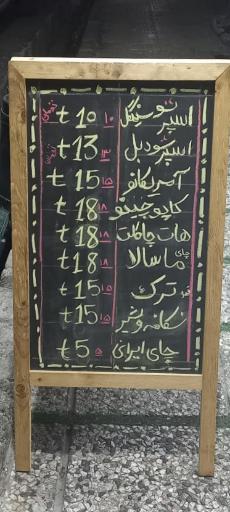 اسپرسو سینگل ۱۰ t 10
اسپرسو دبل ۱۳ t 13
آمریکانو ۱۵ t 15
کاپوچینو ۱۸ t 18
هات چاکلت ۱۸ t 18
چای ماسالا ۱۸ t 18
قهوه ترک ۱۵ t 15
نسکافه و شیر ۱۵ t 15
چای ایرانی ۵ t 5